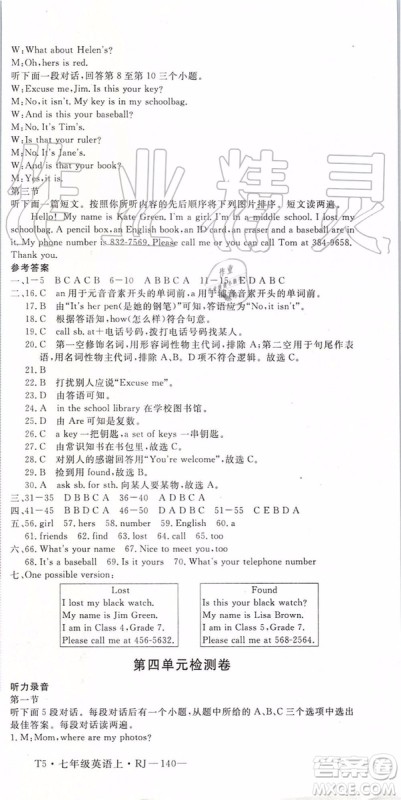 W: What about Helen's?
M: Oh, hers is red.
听下面一段对话，回答第 8 至第 10 三个小题。
W: Excuse me, Jim. Is this your key?
M: No, it isn't. My key is in my schoolbag.
W: And is this your baseball?
M: No. It's Tim's.
W: Is that your ruler?
M: No. It's Jane's.
W: And is that your book?
M: Yes, it is.
第三节
听下面一篇短文。按照你所听内容的先后顺序将下列图片排序。短文读两遍。
Hello! My name is Kate Green. I'm a girl. I'm in a middle school. I lost my
schoolbag. A pencil box, an English book, an ID card and a key are in
it. My phone number is 832-7569. Please call me or call Tom at 384-9658.
Thank you.
参考答案
一、1—5 BCACB 6—10 ABBCA 11—15 EDABC
二、16. C an用于元音音素开头的单词前，a用于辅音音素开头的单词前。
17. B 由答语“It's her pen(是她的钢笔)”可知，应用“No, it isn't”回答。
18. C 根据答语可知，how(怎么样)符合句意。
19. B call sb. at＋电话号码，按电话号码找某人。
20. C 第一空修饰名词，用形容词性物主代词，排除 A；第二空用于句尾作表
语，用名词性物主代词，排除 B、D，D项不符合逻辑。故选 C。
21. B
22. D 打扰别人应说“Excuse me”。
23. D 由答语可知。
24. A in the school library 在学校图书馆。
26. C a key 一把钥匙，a set of keys 一串钥匙。
27. C 由常识可知书包在书包里，故选 C。
28. C 对别人的感谢回答用“You're welcome”，故选 C。
29. B 捡到用 found，故选 B。
30. A ask sb. for sth. 向某人要某物。故选 A。
三、31—35 DBBCA 36—40 ADBCA
四、41—45 BBDCA 46—50 DADBA 51—55 CEBDA
五、56. girl 57. name 58. nine 59. English 60. a
61. friends 62. find 63. lost 64. call 65. 208-6587
六、66. What's your name 67. Nice to meet you
68. It's a baseball 69. Is it yours 70. What's your telephone number
七、One possible version:
Lost
I lost my black watch.
My name is Jim Green.
I am in Class 4, Grade 7.
Please call me at 456-5632.
Found
I found a black watch.
My name is Lisa Brown.
I am in Class 4, Grade 7.
Please call me at 568-2564.
第四单元检测卷
听力录音
第一节
听下面 5 段对话。每段对话后有一个小题，从题中所给的A、B、C三个选项中选出
最佳答案。每段对话读两遍。
1. M: Mom, where are my photos?
T5·七年级英语上·RJ—140—